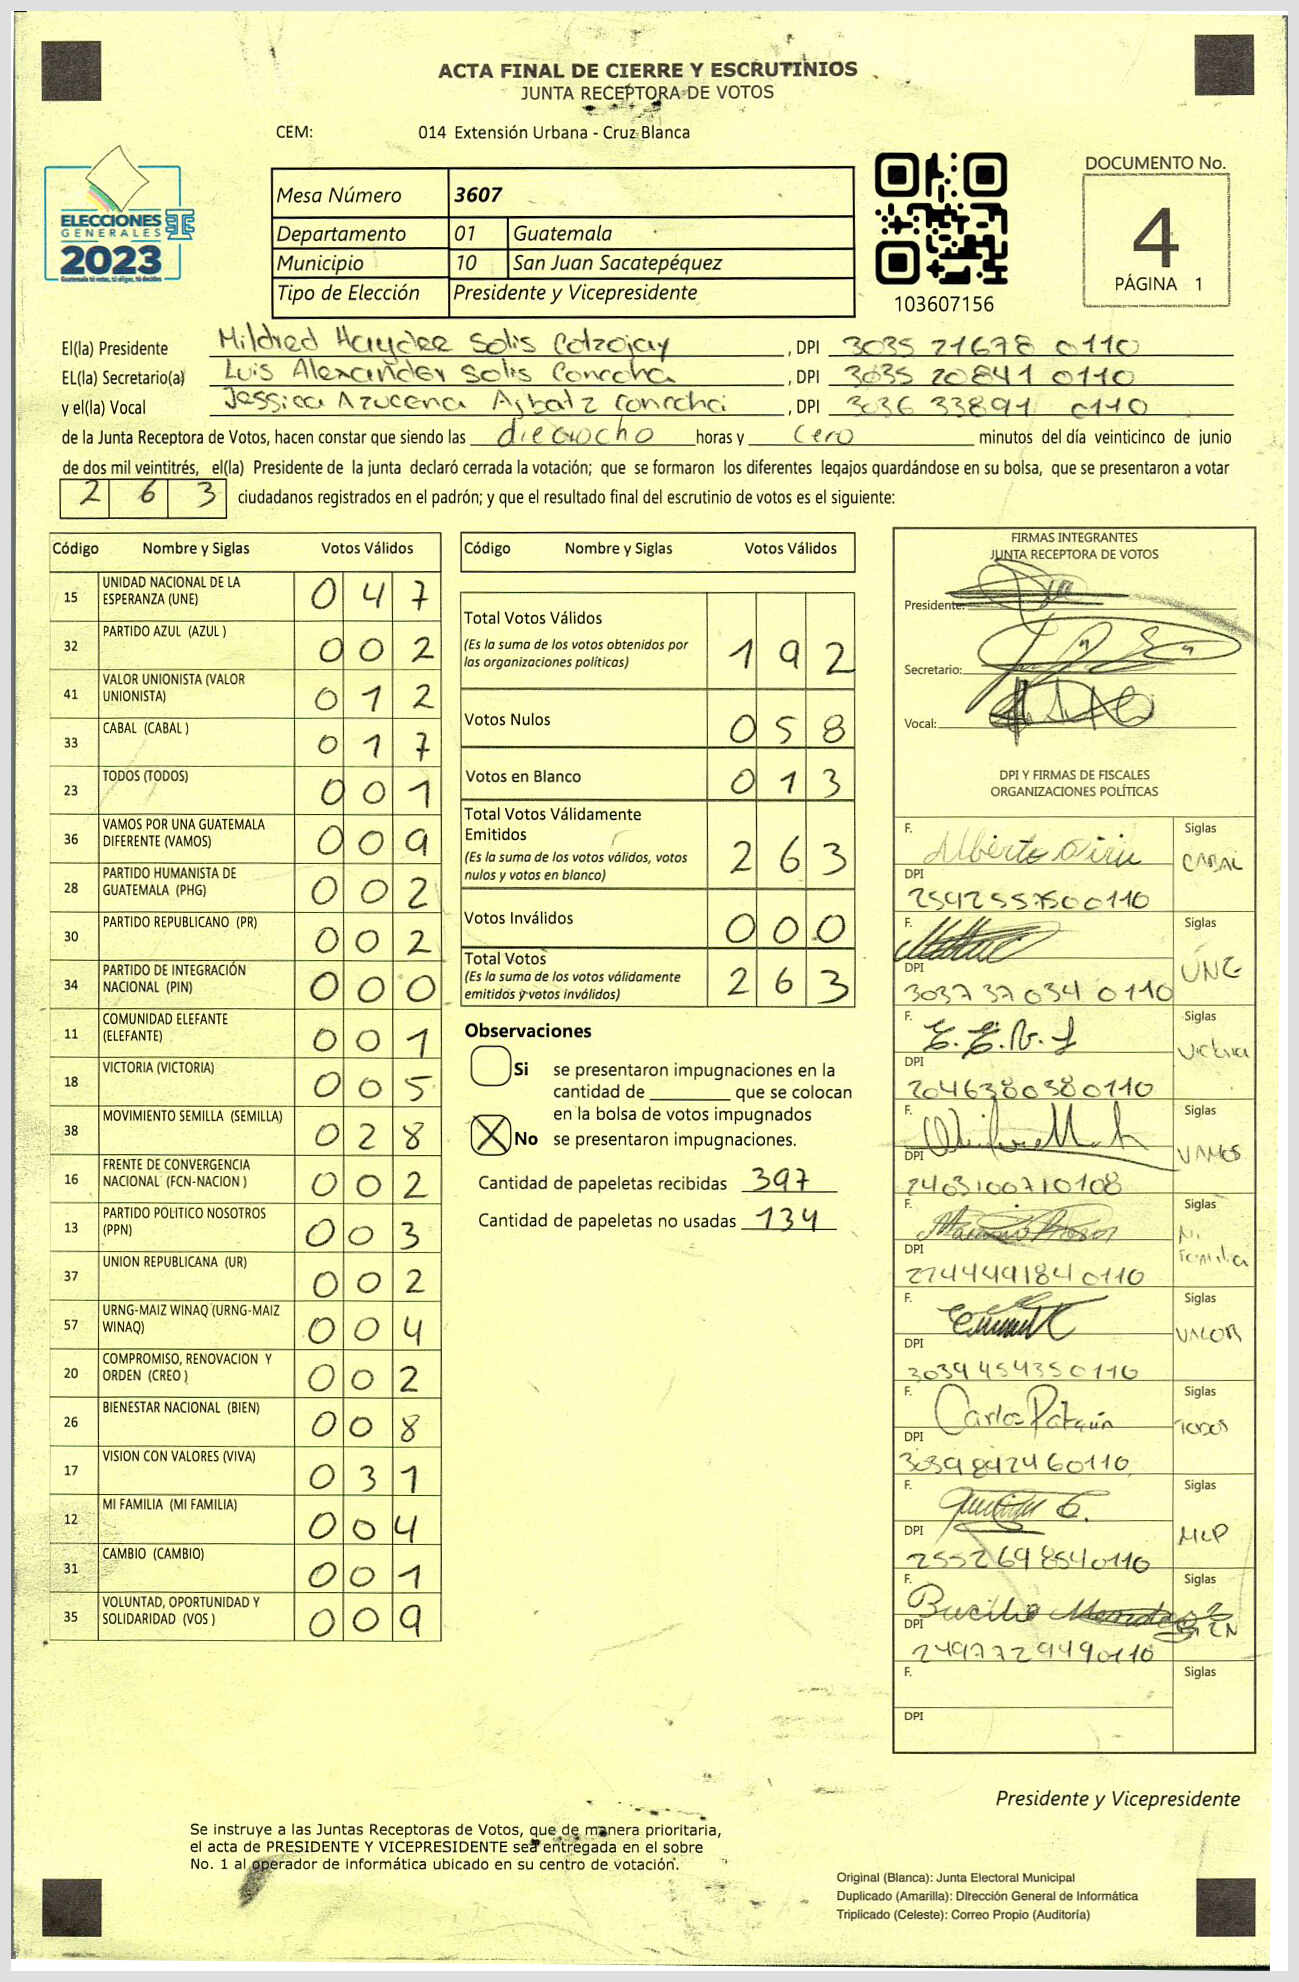 ACTA FINAL DE CIERRE Y ESCRUTINIOS
JUNTA RECEPTORA DE VOTOS
CEM: 014 Extensión Urbana - Cruz Blanca
ELECCIONES
GENERALES
2023
Guatemala tú votas, tú eliges, tú decides
Mesa Número 3607
Departamento 01 Guatemala
Municipio 10 San Juan Sacatepéquez
Tipo de Elección Presidente y Vicepresidente
103607156
DOCUMENTO No.
4
PÁGINA 1
El(la) Presidente Mildred Haydee Solis Cotzojay, DPI 3035 21678 0110
EL(la) Secretario(a) Luis Alexander Solis Concoha, DPI 3035 20841 0110
y el(la) Vocal Jessica Azucena Ajbatz Concha, DPI 3036 33891 0110
de la Junta Receptora de Votos, hacen constar que siendo las dieciocho horas y cero minutos del día veinticinco de junio
de dos mil veintitrés, el(la) Presidente de la junta declaró cerrada la votación; que se formaron los diferentes legajos guardándose en su bolsa, que se presentaron a votar
263 ciudadanos registrados en el padrón; y que el resultado final del escrutinio de votos es el siguiente:
Código Nombre y Siglas Votos Válidos
15 UNIDAD NACIONAL DE LA ESPERANZA (UNE) 047
32 PARTIDO AZUL (AZUL ) 002
41 VALOR UNIONISTA (VALOR UNIONISTA) 012
33 CABAL (CABAL ) 017
23 TODOS (TODOS) 001
36 VAMOS POR UNA GUATEMALA DIFERENTE (VAMOS) 009
28 PARTIDO HUMANISTA DE GUATEMALA (PHG) 002
30 PARTIDO REPUBLICANO (PR) 002
34 PARTIDO DE INTEGRACIÓN NACIONAL (PIN) 000
11 COMUNIDAD ELEFANTE (ELEFANTE) 001
18 VICTORIA (VICTORIA) 005
38 MOVIMIENTO SEMILLA (SEMILLA) 028
16 FRENTE DE CONVERGENCIA NACIONAL (FCN-NACION ) 002
13 PARTIDO POLITICO NOSOTROS (PPN) 003
37 UNION REPUBLICANA (UR) 002
57 URNG-MAIZ WINAQ (URNG-MAIZ WINAQ) 004
20 COMPROMISO, RENOVACION Y ORDEN (CREO ) 002
26 BIENESTAR NACIONAL (BIEN) 008
17 VISION CON VALORES (VIVA) 031
12 MI FAMILIA (MI FAMILIA) 004
31 CAMBIO (CAMBIO) 001
35 VOLUNTAD, OPORTUNIDAD Y SOLIDARIDAD (VOS ) 009
Código Nombre y Siglas Votos Válidos
Total Votos Válidos 192
(Es la suma de los votos obtenidos por
las organizaciones políticas)
Votos Nulos 058
Votos en Blanco 013
Total Votos Válidamente
Emitidos 263
(Es la suma de los votos válidos, votos
nulos y votos en blanco)
Votos Inválidos 000
Total Votos 263
(Es la suma de los votos válidamente
emitidos y votos inválidos)
Observaciones
Si se presentaron impugnaciones en la
cantidad de ________ que se colocan
en la bolsa de votos impugnados
X No se presentaron impugnaciones.
Cantidad de papeletas recibidas 397
Cantidad de papeletas no usadas 134
FIRMAS INTEGRANTES
JUNTA RECEPTORA DE VOTOS
Presidente:
Secretario:
Vocal:
DPI Y FIRMAS DE FISCALES
ORGANIZACIONES POLÍTICAS
F. Alberto Siglas CABAL
DPI 2592557500110
F. Siglas UNE
DPI 3037 37034 0110
F. E. E. N. J Siglas Victoria
DPI 2046380380110
F. Siglas VAMOS
DPI 2403100710108
F. Siglas Mi Familia
DPI 2274449184 0110
F. Siglas VALOR
DPI 3039454350110
F. Carlos Patzún Siglas TODOS
DPI 3039892460110
F. Siglas MLP
DPI 2552698540110
F. Siglas
DPI 2497729490110
F. Siglas
DPI
Presidente y Vicepresidente
Se instruye a las Juntas Receptoras de Votos, que de manera prioritaria,
el acta de PRESIDENTE Y VICEPRESIDENTE sea entregada en el sobre
No. 1 al operador de informática ubicado en su centro de votación.
Original (Blanca): Junta Electoral Municipal
Duplicado (Amarilla): Dirección General de Informática
Triplicado (Celeste): Correo Propio (Auditoría)